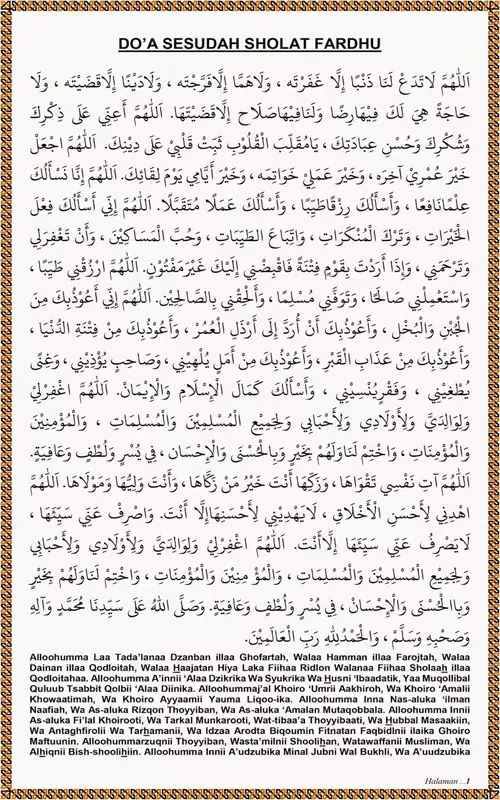 DO'A SESUDAH SHOLAT FARDHU
اَللّٰهُمَّ لَاتَدَعْ لَنَا ذَنْبًا إِلَّا غَفَرْتَه ، وَلَاهَمًّا إِلَّافَرَّجْتَه ، وَلَادَيْنًا إِلَّاقَضَيْتَه ، وَلَا
حَاجَةً هِيَ لَكَ فِيْهَارِضًا وَلَنَافِيْهَاصَلَاح إِلَّاقَضَيْتَهَا. اَللّٰهُمَّ أَعِنِّي عَلَى ذِكْرِكَ
وَشُكْرِكَ وَحُسْنِ عِبَادَتِكَ ، يَامُقَلِّبَ الْقُلُوْبِ ثَبِّتْ قَلْبِيْ عَلَى دِيْنِكَ. اَللّٰهُمَّ اجْعَلْ
خَيْرَ عُمْرِيْ آخِرَه ، وَخَيْرَ عَمَلِيْ خَوَاتِمَه ، وَخَيْرَ أَيَّامِي يَوْمَ لِقَائِكَ. اَللّٰهُمَّ إِنَّا نَسْأَلُكَ
عِلْمًانَافِعًا ، وَأَسْأَلُكَ رِزْقًاطَيِّبًا ، وَأَسْأَلُكَ عَمَلًا مُتَقَبَّلًا. اَللّٰهُمَّ إِنِّي أَسْأَلُكَ فِعْلَ
الْخَيْرَاتِ ، وَتَرْكَ الْمُنْكَرَاتِ ، وَاتِبَاعَ الطَّيِّبَاتِ ، وَحُبَّ الْمَسَاكِيْنَ ، وَأَنْ تَغْفِرَلِي
وَتَرْحَمَنِي ، وَإِذَا أَرَدْتَ بِقَوْمٍ فِتْنَةً فَاقْبِضْنِي إِلَيْكَ غَيْرَمَفْتُوْنٍ. اَللّٰهُمَّ ارْزُقْنِي طَيِّبًا ،
وَاسْتَعْمِلْنِي صَالِحًا ، وَتَوَفَّنِي مُسْلِمًا ، وَأَلْحِقْنِي بِالصَّالِحِيْنَ. اَللّٰهُمَّ إِنِّي أَعُوْذُبِكَ مِنَ
الْجُبْنِ وَالْبُخْلِ ، وَأَعُوْذُبِكَ أَنْ أُرَدَّ إِلَى أَرْذَلِ الْعُمُرْ ، وَأَعُوْذُبِكَ مِنْ فِتْنَةِ الدُّنْيَا ،
وَأَعُوْذُبِكَ مِنْ عَذَابِ الْقَبْرِ ، وَأَعُوْذُبِكَ مِنْ أَمَلٍ يُلْهِيْنِي ، وَصَاحِبٍ يُؤْذِيْنِي ، وَغِنًى
يُطْغِيْنِي ، وَفَقْرٍيُنْسِيْنِي ، وَأَسْأَلُكَ كَمَالَ الْإِسْلَامِ وَالْإِيْمَانْ. اَللّٰهُمَّ اغْفِرْلِيْ
وَلِوَالِدَيَّ وَلِأَوْلَادِي وَلِأَحْبَابِي وَلِجَمِيْعِ الْمُسْلِمِيْنَ وَالْمُسْلِمَاتِ ، وَالْمُؤْمِنِيْنَ
وَالْمُؤْمِنَاتِ ، وَاخْتِمْ لَنَاوَلَهُمْ بِخَيْرٍ وَبِالْحُسْنَى وَالْإِحْسَان ، فِي يُسْرٍ وَلُطْفٍ وَعَافِيَةٍ.
اَللّٰهُمَّ آتِ نَفْسِي تَقْوَاهَا ، وَزَكِّهَا أَنْتَ خَيْرُ مَنْ زَكَّاهَا ، وَأَنْتَ وَلِيُّهَا وَمَوْلَاهَا. اَللّٰهُمَّ
اهْدِنِي لِأَحْسَنِ الْأَخْلَاقِ ، لَايَهْدِيْنِي لِأَحْسَنِهَاإِلَّا أَنْتَ. وَاصْرِفْ عَنِّي سَيِّئَهَا ،
لَايَصْرِفُ عَنِّي سَيِّئَهَا إِلَّاأَنْتَ. اَللّٰهُمَّ اغْفِرْلِيْ وَلِوَالِدَيَّ وَلِأَوْلَادِي وَلِأَحْبَابِي
وَلِجَمِيْعِ الْمُسْلِمِيْنَ وَالْمُسْلِمَاتِ ، وَالْمُؤْ مِنِيْنَ وَالْمُؤْمِنَاتِ ، وَاخْتِمْ لَنَاوَلَهُمْ بِخَيْرٍ
وَبِاالْحُسْنَى وَالْإِحْسَانْ ، فِي يُسْرٍ وَلُطْفٍ وَعَافِيَةٍ. وَصَلَّى اللهُ عَلَى سَيِّدِنَا مُحَمَّدٍ وَآلِهِ
وَصَحْبِهِ وَسَلَّمْ ، وَالْحَمْدُلِلّٰهِ رَبِّ الْعَالَمِيْنَ.
Alloohumma Laa Tada'lanaa Dzanban illaa Ghofartah, Walaa Hamman illaa Farojtah, Walaa
Dainan illaa Qodloitah, Walaa Haajatan Hiya Laka Fiihaa Ridlon Walanaa Fiihaa Sholaah illaa
Qodloitahaa. Alloohumma A'innii 'Alaa Dzikrika Wa Syukrika Wa Husni 'Ibaadatik, Yaa Muqollibal
Quluub Tsabbit Qolbii 'Alaa Diinika. Alloohummaj'al Khoiro 'Umrii Aakhiroh, Wa Khoiro 'Amalii
Khowaatimah, Wa Khoiro Ayyaamii Yauma Liqoo-ika. Alloohumma Inna Nas-aluka 'ilman
Naafiah, Wa As-aluka Rizqon Thoyyiban, Wa As-aluka 'Amalan Mutaqobbala. Alloohumma Innii
As-aluka Fi'lal Khoirooti, Wa Tarkal Munkarooti, Wat-tibaa'a Thoyyibaati, Wa Hubbal Masaakiin,
Wa Antaghfirolii Wa Tarhamanii, Wa Idzaa Arodta Biqoumin Fitnatan Faqbidlnii ilaika Ghoiro
Maftuunin. Alloohummarzuqnii Thoyyiban, Wasta'milnii Shoolihan, Watawaffanii Musliman, Wa
Alhiqnii Bish-shoolihiin. Alloohumma Innii A'udzubika Minal Jubni Wal Bukhli, Wa A'uudzubika
Halaman...1